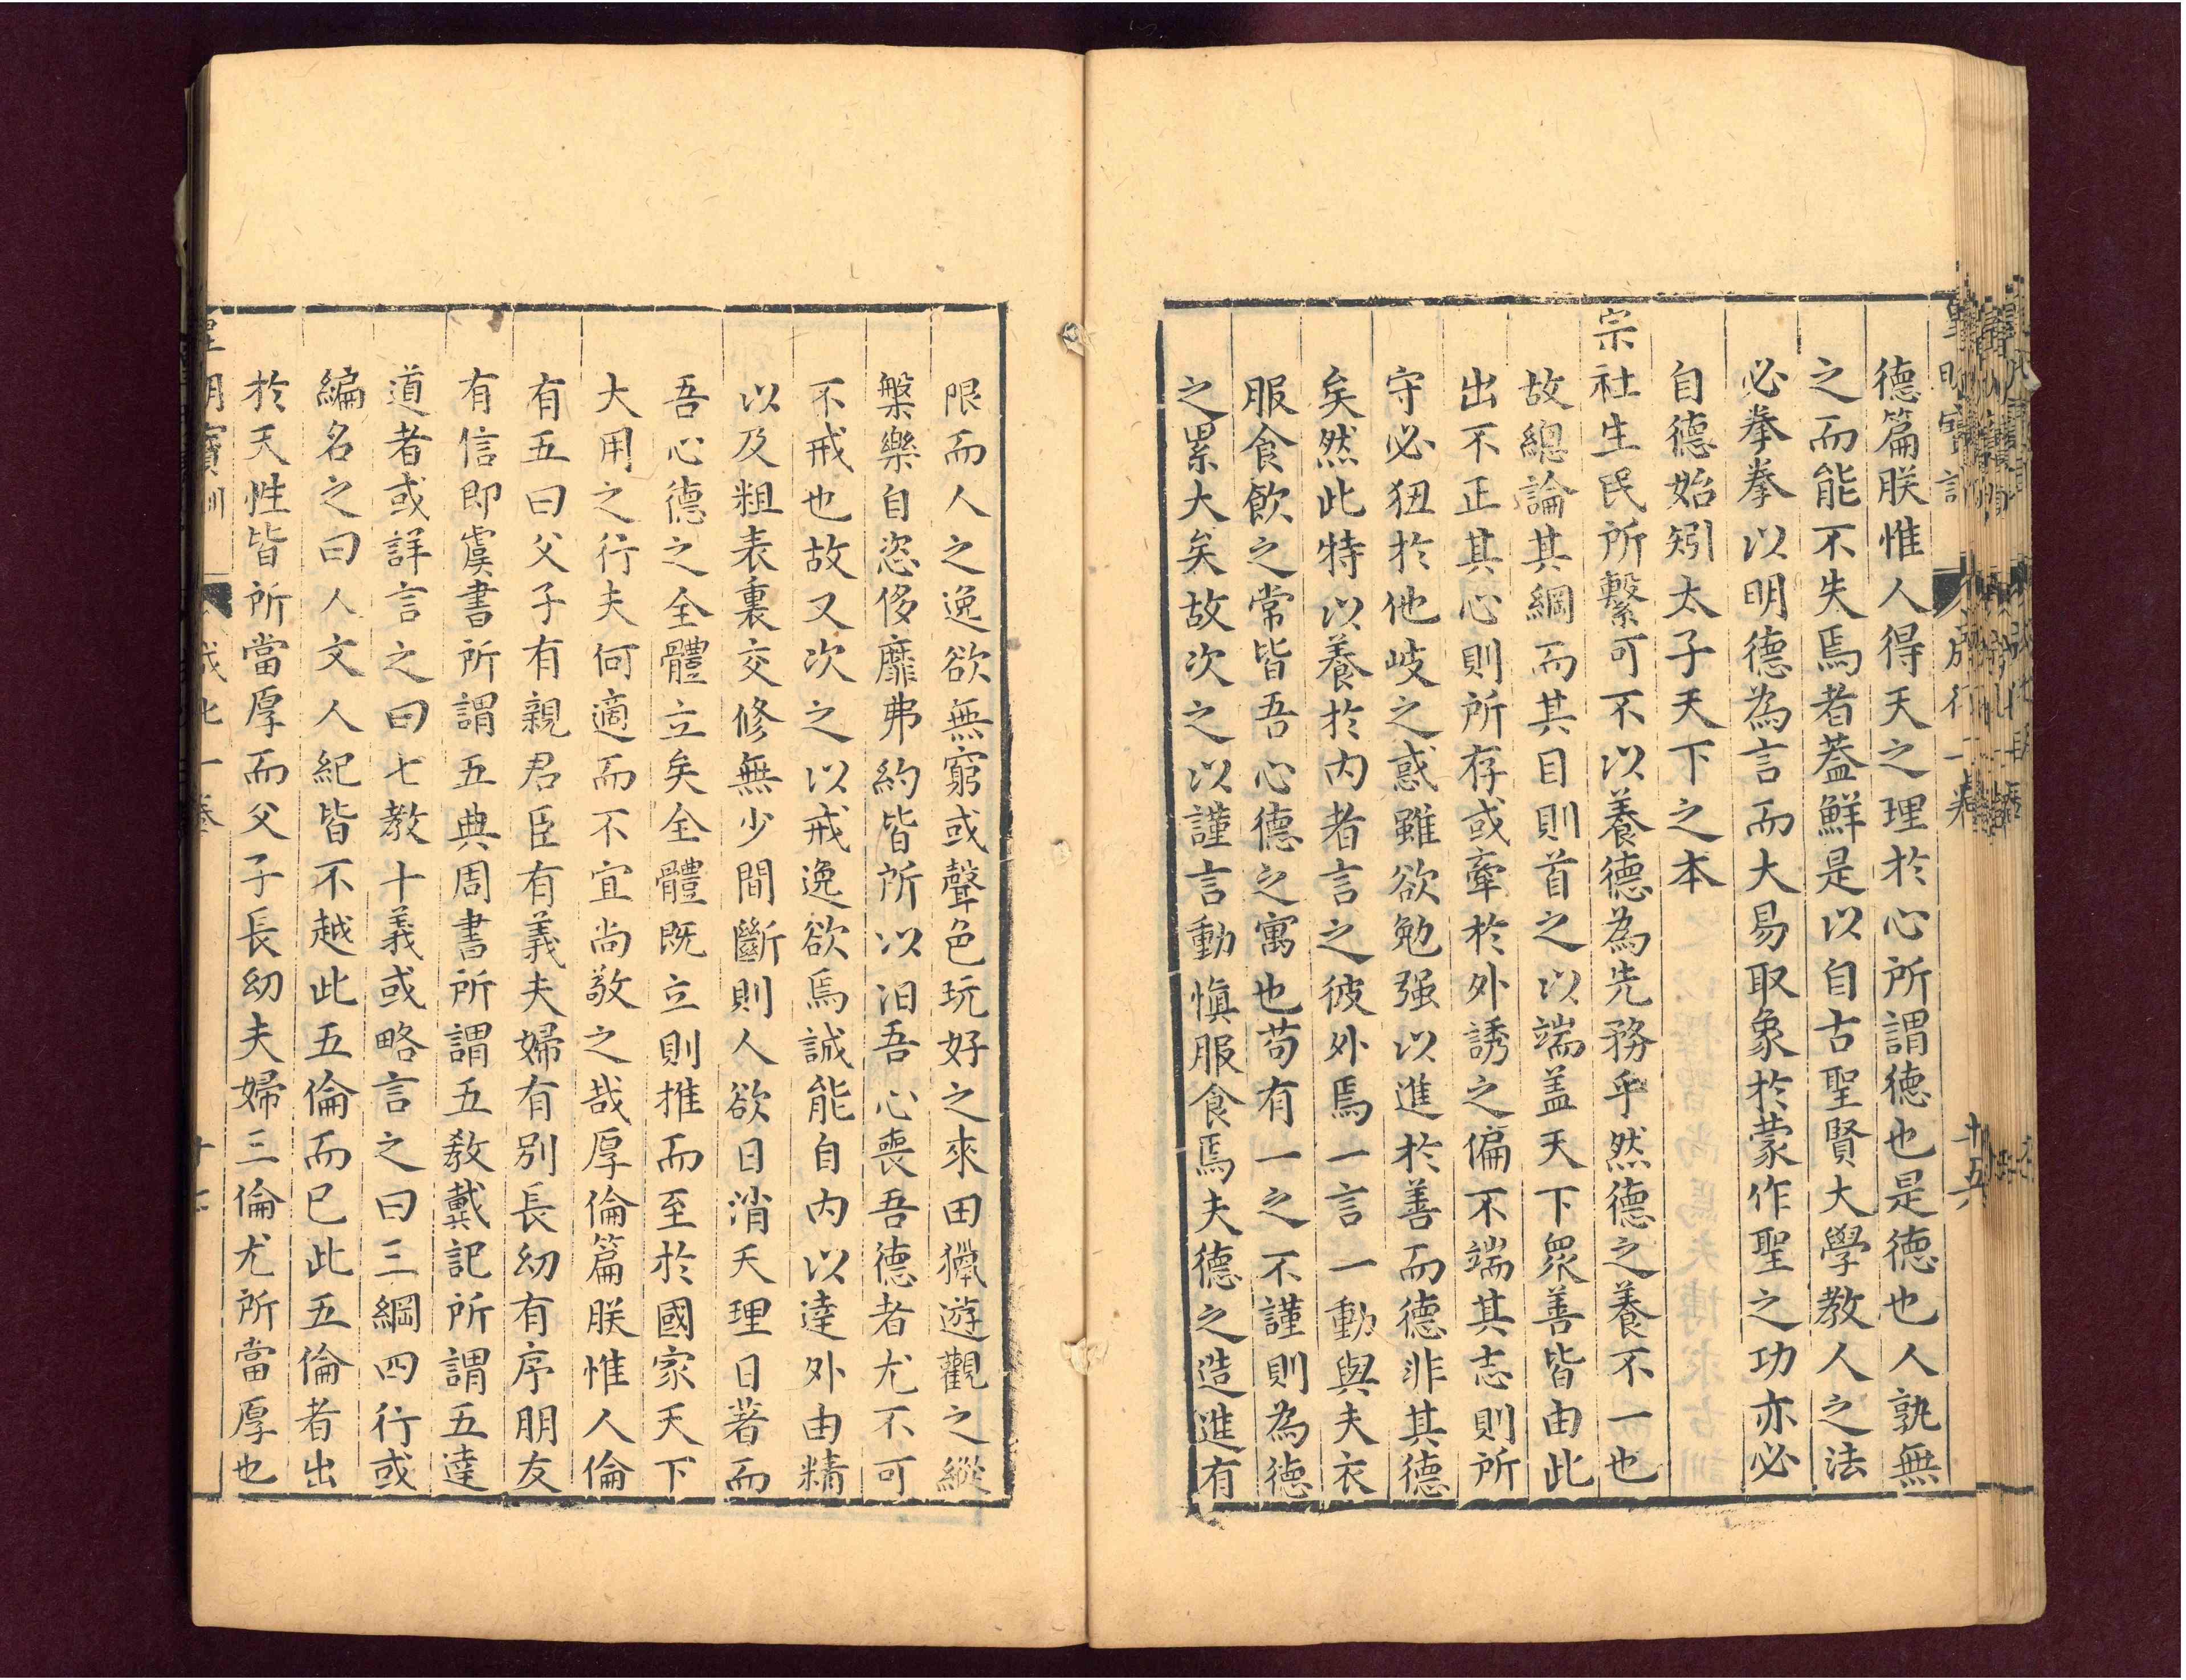 德篇朕惟人得天之理於心所謂德也是德也人孰無
之而能不失焉者蓋鮮是以自古聖賢大學教人之法
必拳拳以明德為言而大易取象於蒙作聖之功亦必
自德始矧太子天下之本
宗社生民所繫可不以養德為先務乎然德之養不一也
故總論其綱而其目則首之以端蓋天下眾善皆由此
出不正其心則所存或牽於外誘之偏不端其志則所
守必狃於他岐之惑雖欲勉强以進於善而德非其德
矣然此特以養於内者言之彼外焉一言一動與夫衣
服食飲之常皆吾心德之寓也苟有一之不謹則為德
之累大矣故次之以謹言動慎服食焉夫德之造進有
限而人之逸欲無窮或聲色玩好之來田獵遊觀之縱
槃樂自恣侈靡弗約皆所以汩吾心喪吾德者尤不可
不戒也故又次之以戒逸欲焉誠能自内以達外由精
以及粗表裏交修無少間斷則人欲日消天理日著而
吾心德之全體立矣全體既立則推而至於國家天下
大用之行夫何適而不宜尚敬之哉厚倫篇朕惟人倫
有五曰父子有親君臣有義夫婦有別長幼有序朋友
有信即虞書所謂五典周書所謂五教戴記所謂五達
道者或詳言之曰七教十義或略言之曰三綱四行或
編名之曰人文人紀皆不越此五倫而已此五倫者出
於天性皆所當厚而父子長幼夫婦三倫尤所當厚也